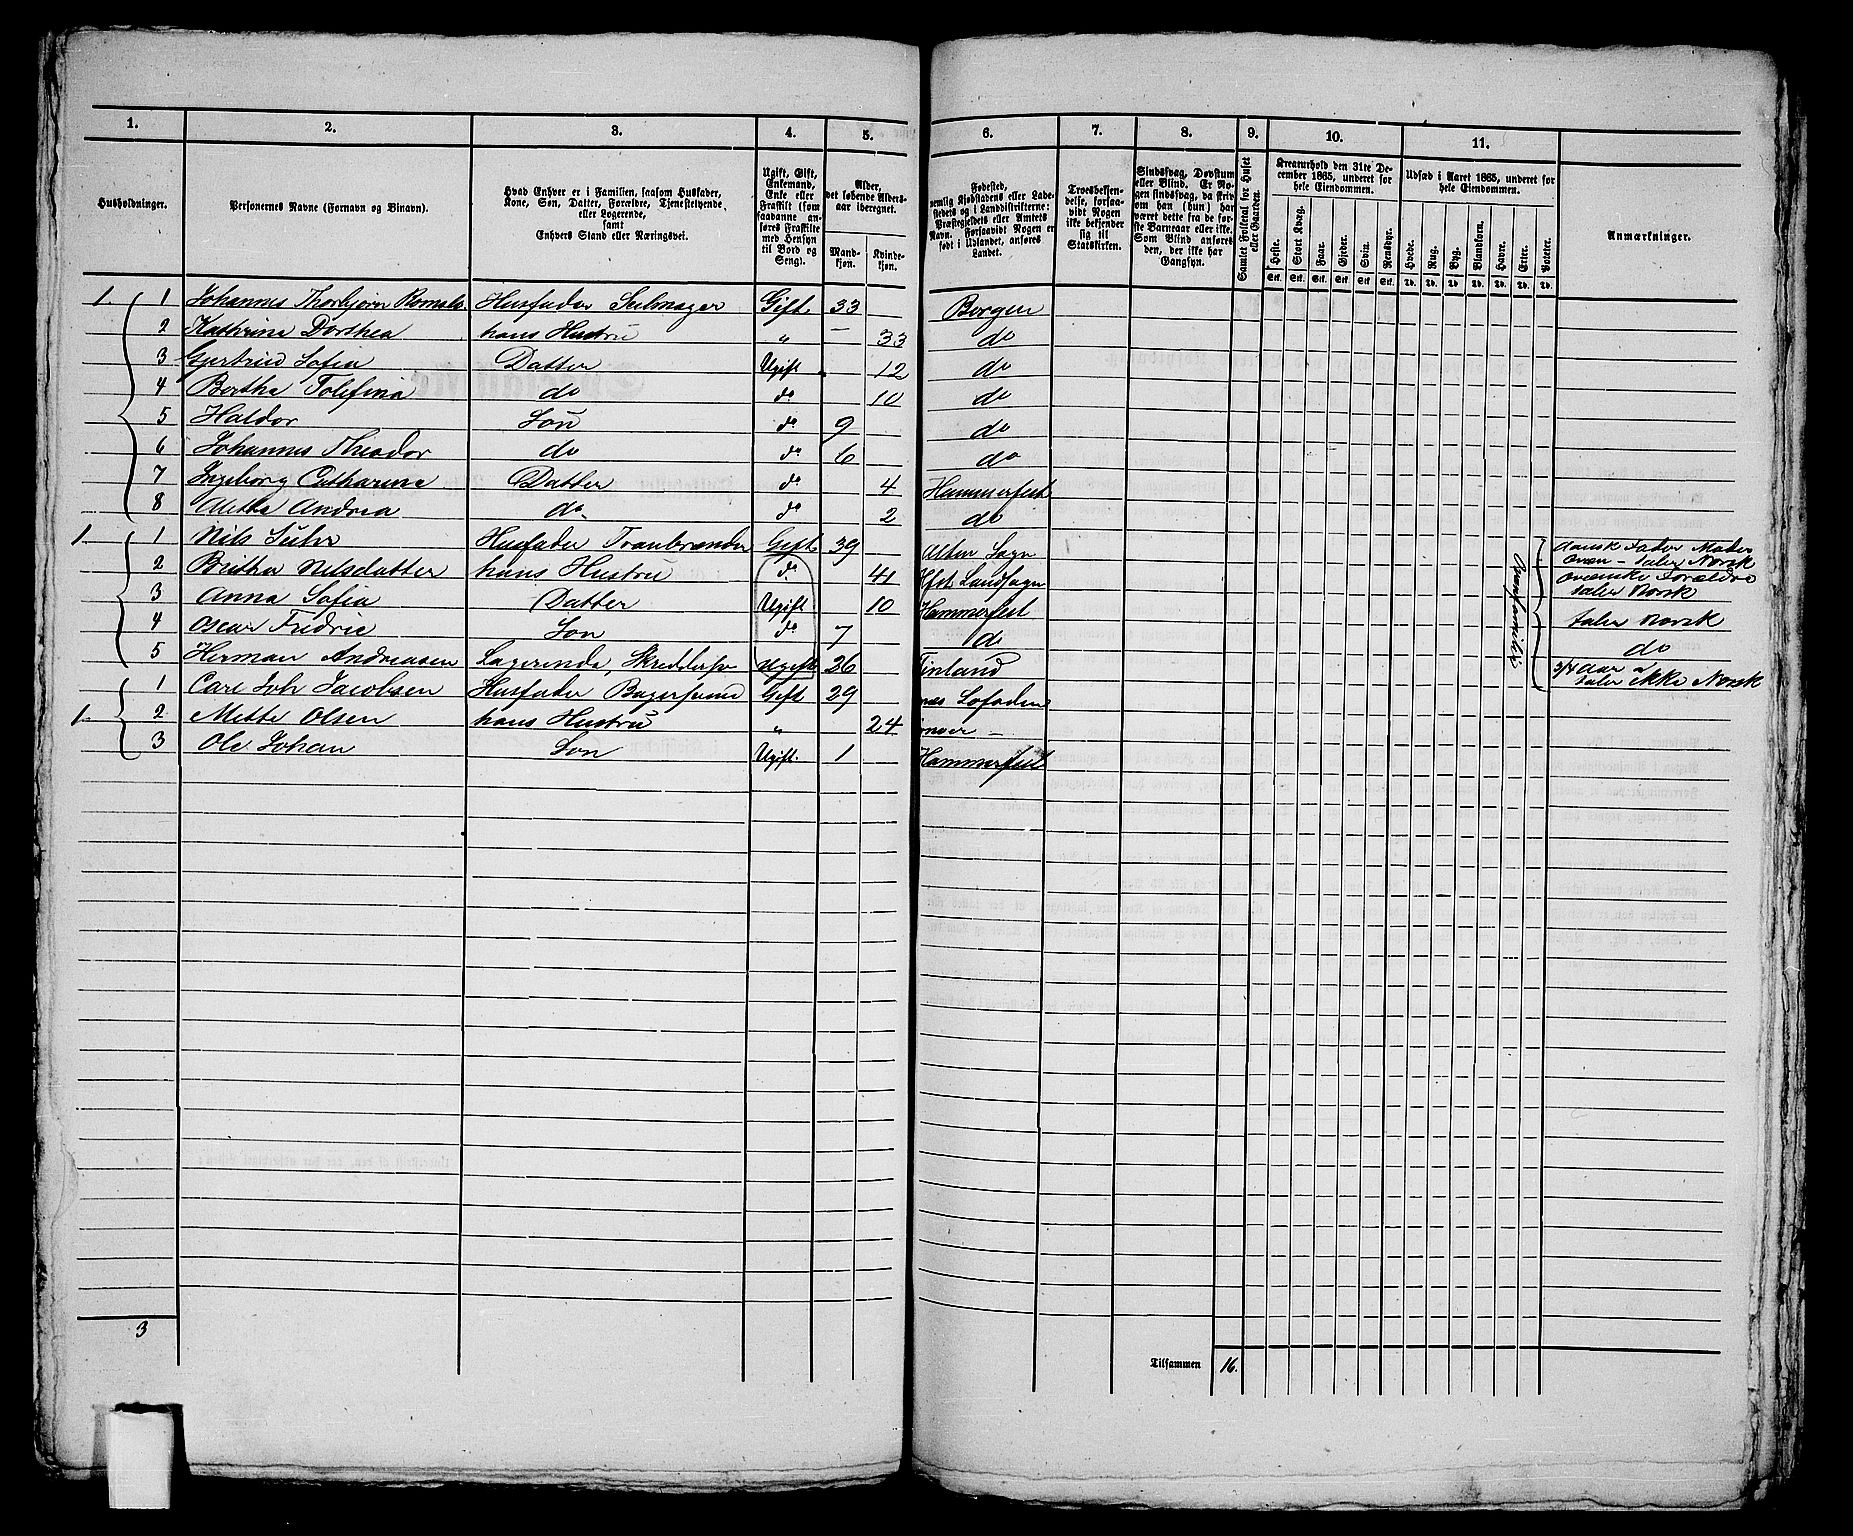 1. 2. 3. 4. 5. 6. 7. 8. 9. 10. 11.
Husholdninger.
Personernes Navne (Fornavn og Binavn).
Hvad Enhver er i Familien, saasom Husfader,
Kone, Søn, Datter, Forældre, Tjenestetyende,
eller Logerende,
samt
Enhvers Stand eller Næringsvei.
Ugift, Gift,
Enkemand,
Enke eller
Fraskilt (som
saadanne an-
føres Fraskilte
med Hensyn
til Bord og
Seng).
Alder,
det løbende Alders-
aar iberegnet.
Mand-
kjøn.
Kvinde-
kjøn.
Fødested,
nemlig Kjøbstadens eller Lade-
stedets og i Landdistrikterne:
Præstegjeldets eller Amtets
Navn. Forsaavidt Nogen er
født i Udlandet, anføres
Landet.
Troesbekjen-
delse, forsaa-
vidt Nogen
ikke bekjender
sig til
Statskirken.
Sindssvag, Døvstum
eller Blind. Er No-
gen sindssvag, da skriv
om han (hun) har
været dette fra de før-
ste Barneaar eller ikke.
Som Blind anføres
den, der ikke har
Gangsyn.
Samlet Folketal for Huset
eller Gaarden.
Kreaturhold den 31te De-
cember 1865, underet for
hele Eiendommen.
Heste. Stort Kvæg. Faar. Gjeder. Svin. Rensdyr.
Stk. Stk. Stk. Stk. Stk. Stk.
Udsæd i Aaret 1865, underet for
hele Eiendommen.
Hvede. Rug. Byg. Blandkorn. Havre. Erter. Poteter.
Td. Td. Td. Td. Td. Td. Td.
Anmærkninger.
1. 1 Johannes Thorbjørn Husfader Selmager Gift 33 Bergen
2 Kathrina Dorthea hans Hustru " — 33 do
3 Gjertrud Sofia Datter Ugift 12 do
4 Bertha Tolefina do do 10 do
5 Haldor Søn do 9 do
6 Johannes Theodor do do 6 do
7 Ingeborg Catharina Datter do 4 Hammerfest
8 Mette Andrea do do 2 do
1. 1 Nils Suhr Husfader Tranbrænder Gift 39 Alten Sogn dansk Fader Moder
qvæn – taler Norsk
2 Britha Nilsdatter hans Hustru do 41 Hfst Landsogn qvænske Forældre
taler Norsk
3 Anna Sofia Datter Ugift 10 Hammerfest taler Norsk
4 Oscar Fredric Søn do 7 d do
5 Herman Andreasen Logerende, Skrædder Ugift 26 Finland 3/4 aar
taler ikke Norsk
1 Carl Joh Jacobsen Husfader Bagersvend Gift 29 Lofoden
1. 2 Mette Olsen hans Hustru " 24
3 Ole Johan Søn Ugift. 1 Hammerfest
3
Tilsammen 16.